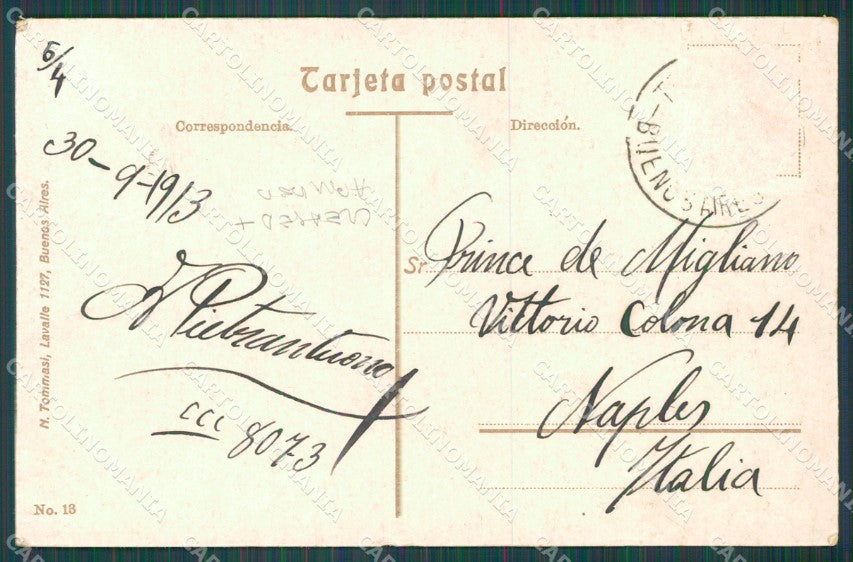 5/4
Tarjeta postal
Correspondencia.
Dirección.
BUENOS AIRES
30-9-1913
Sr Prince de Migliano
Vittorio Colona 14
Naples
Italia
Pietrantuono
CCC 8073
N. Tommasi, Lavalle 1127, Buenos Aires.
No. 13
CARTOLINOMANIA